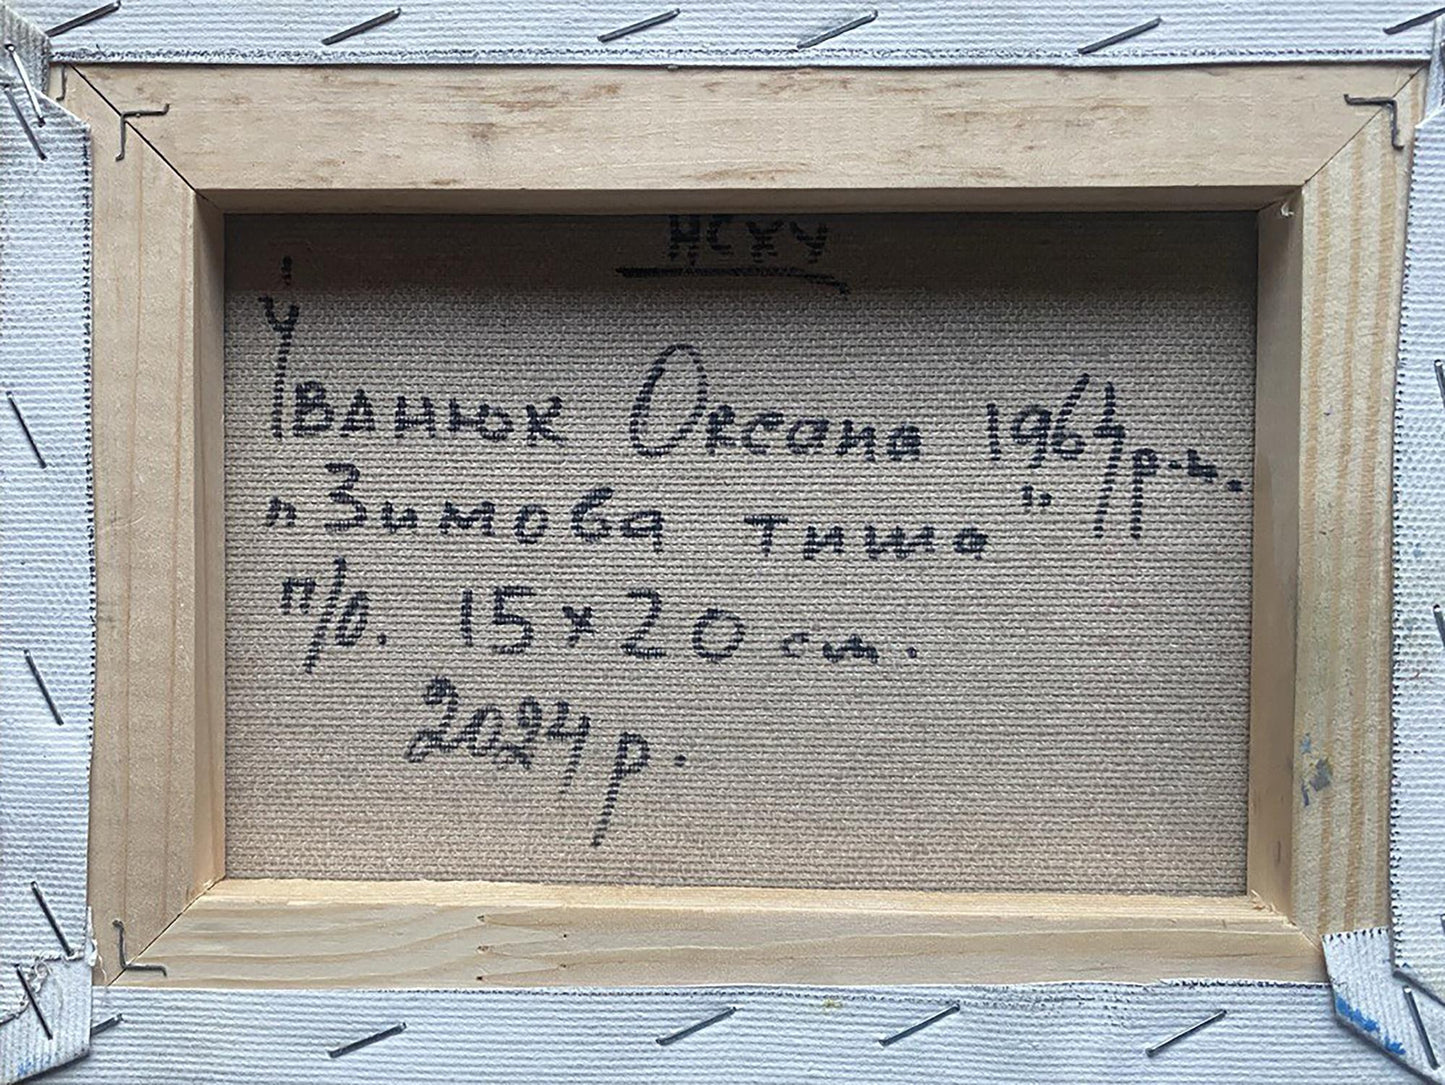 НСХУ
Іванюк Оксана 1964 р.н.
„Зимова тиша"
п/о. 15×20 см.
2024 р.